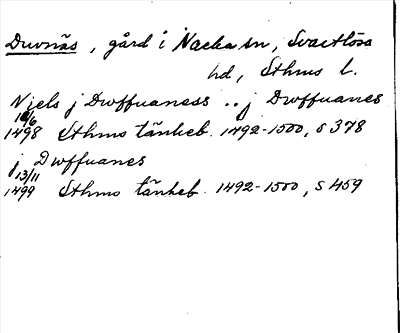 Duvnäs, gård i Nacka sn, Svartlösa
hd, Sthms l.
Njels j Dwffuaness .. j Dwffuanes
18/6
1498 Sthms tänkeb. 1492-1500, s 378
j Dwffuanes
13/11
1499 Sthms tänkeb. 1492-1500, s 459